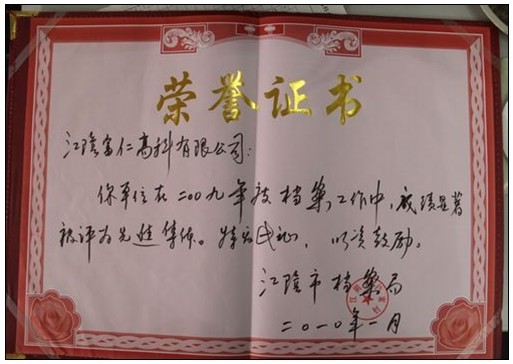 荣誉证书
江阴富仁高科有限公司:
你单位在二00九年度档案工作中,成绩显著
被评为先进集体。特发此证,以资鼓励。
江阴市档案局
二0一0年一月